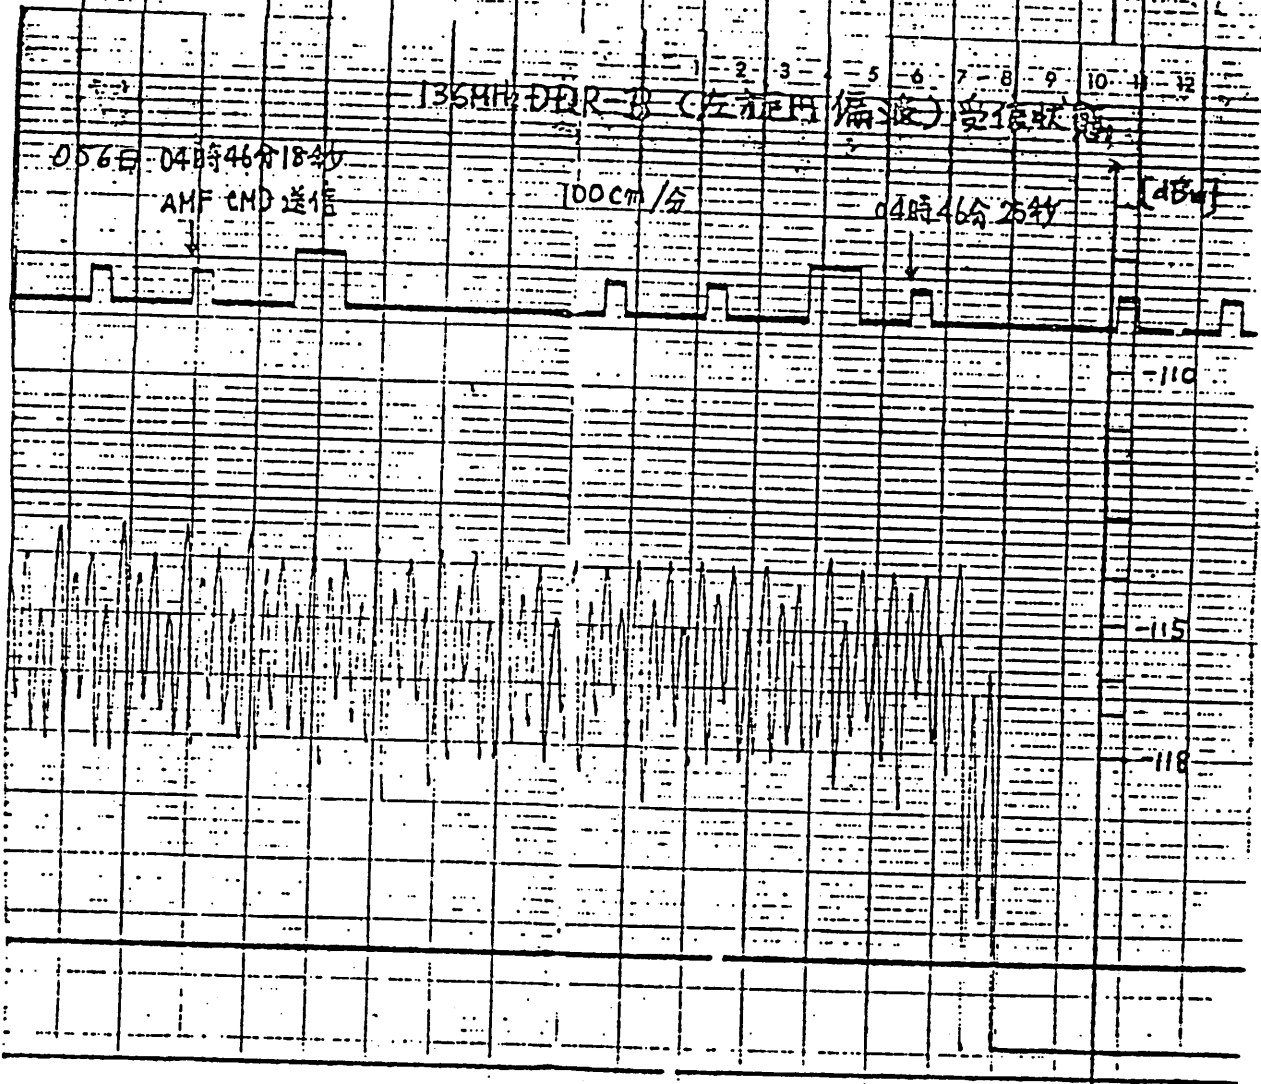 1 2 3 4 5 6 7 8 9 10 11 12
136MHz DDR-B (左旋円偏波) 受信状態
056日 04時46分18秒
AMF CMD 送信
100cm/分
04時46分25秒
[dBm]
-110
-115
-118